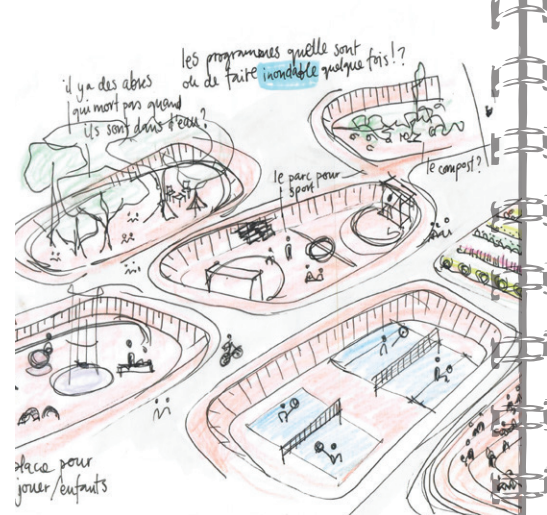 les programmes quelle sont
ou de faite inondable quelque fois!?
il y a des abres
qui mort pas quand
ils sont dans l'eau?
le compost?
le parc pour
sport
place pour
jouer/enfants